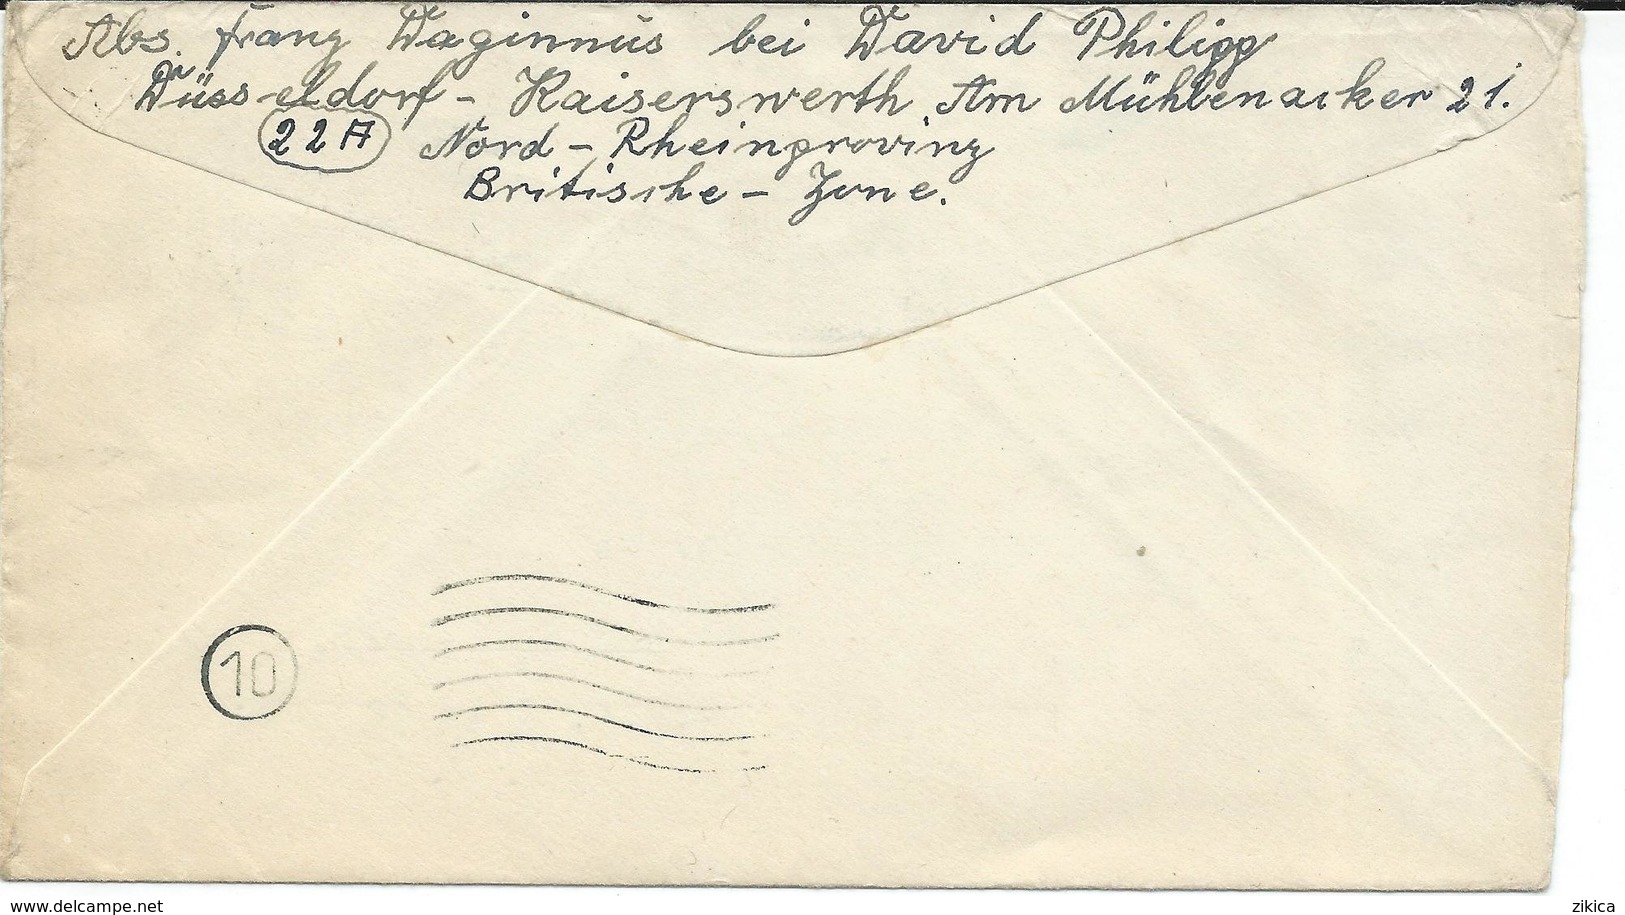 Abs. Franz Daginnus bei David Philipp
Düsseldorf - Kaiserswerth Am Mühlenacker 21.
22A Nord - Rheinprovinz
Britische - Zone.
10
www.delcampe.net
zikica